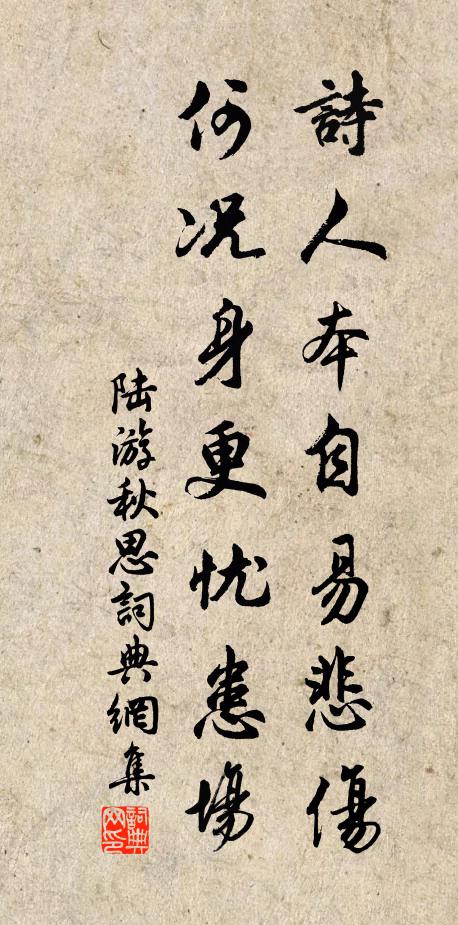 詩人本自易悲傷
何况身更忧患場
陆游秋思詞典網集
詞典网印